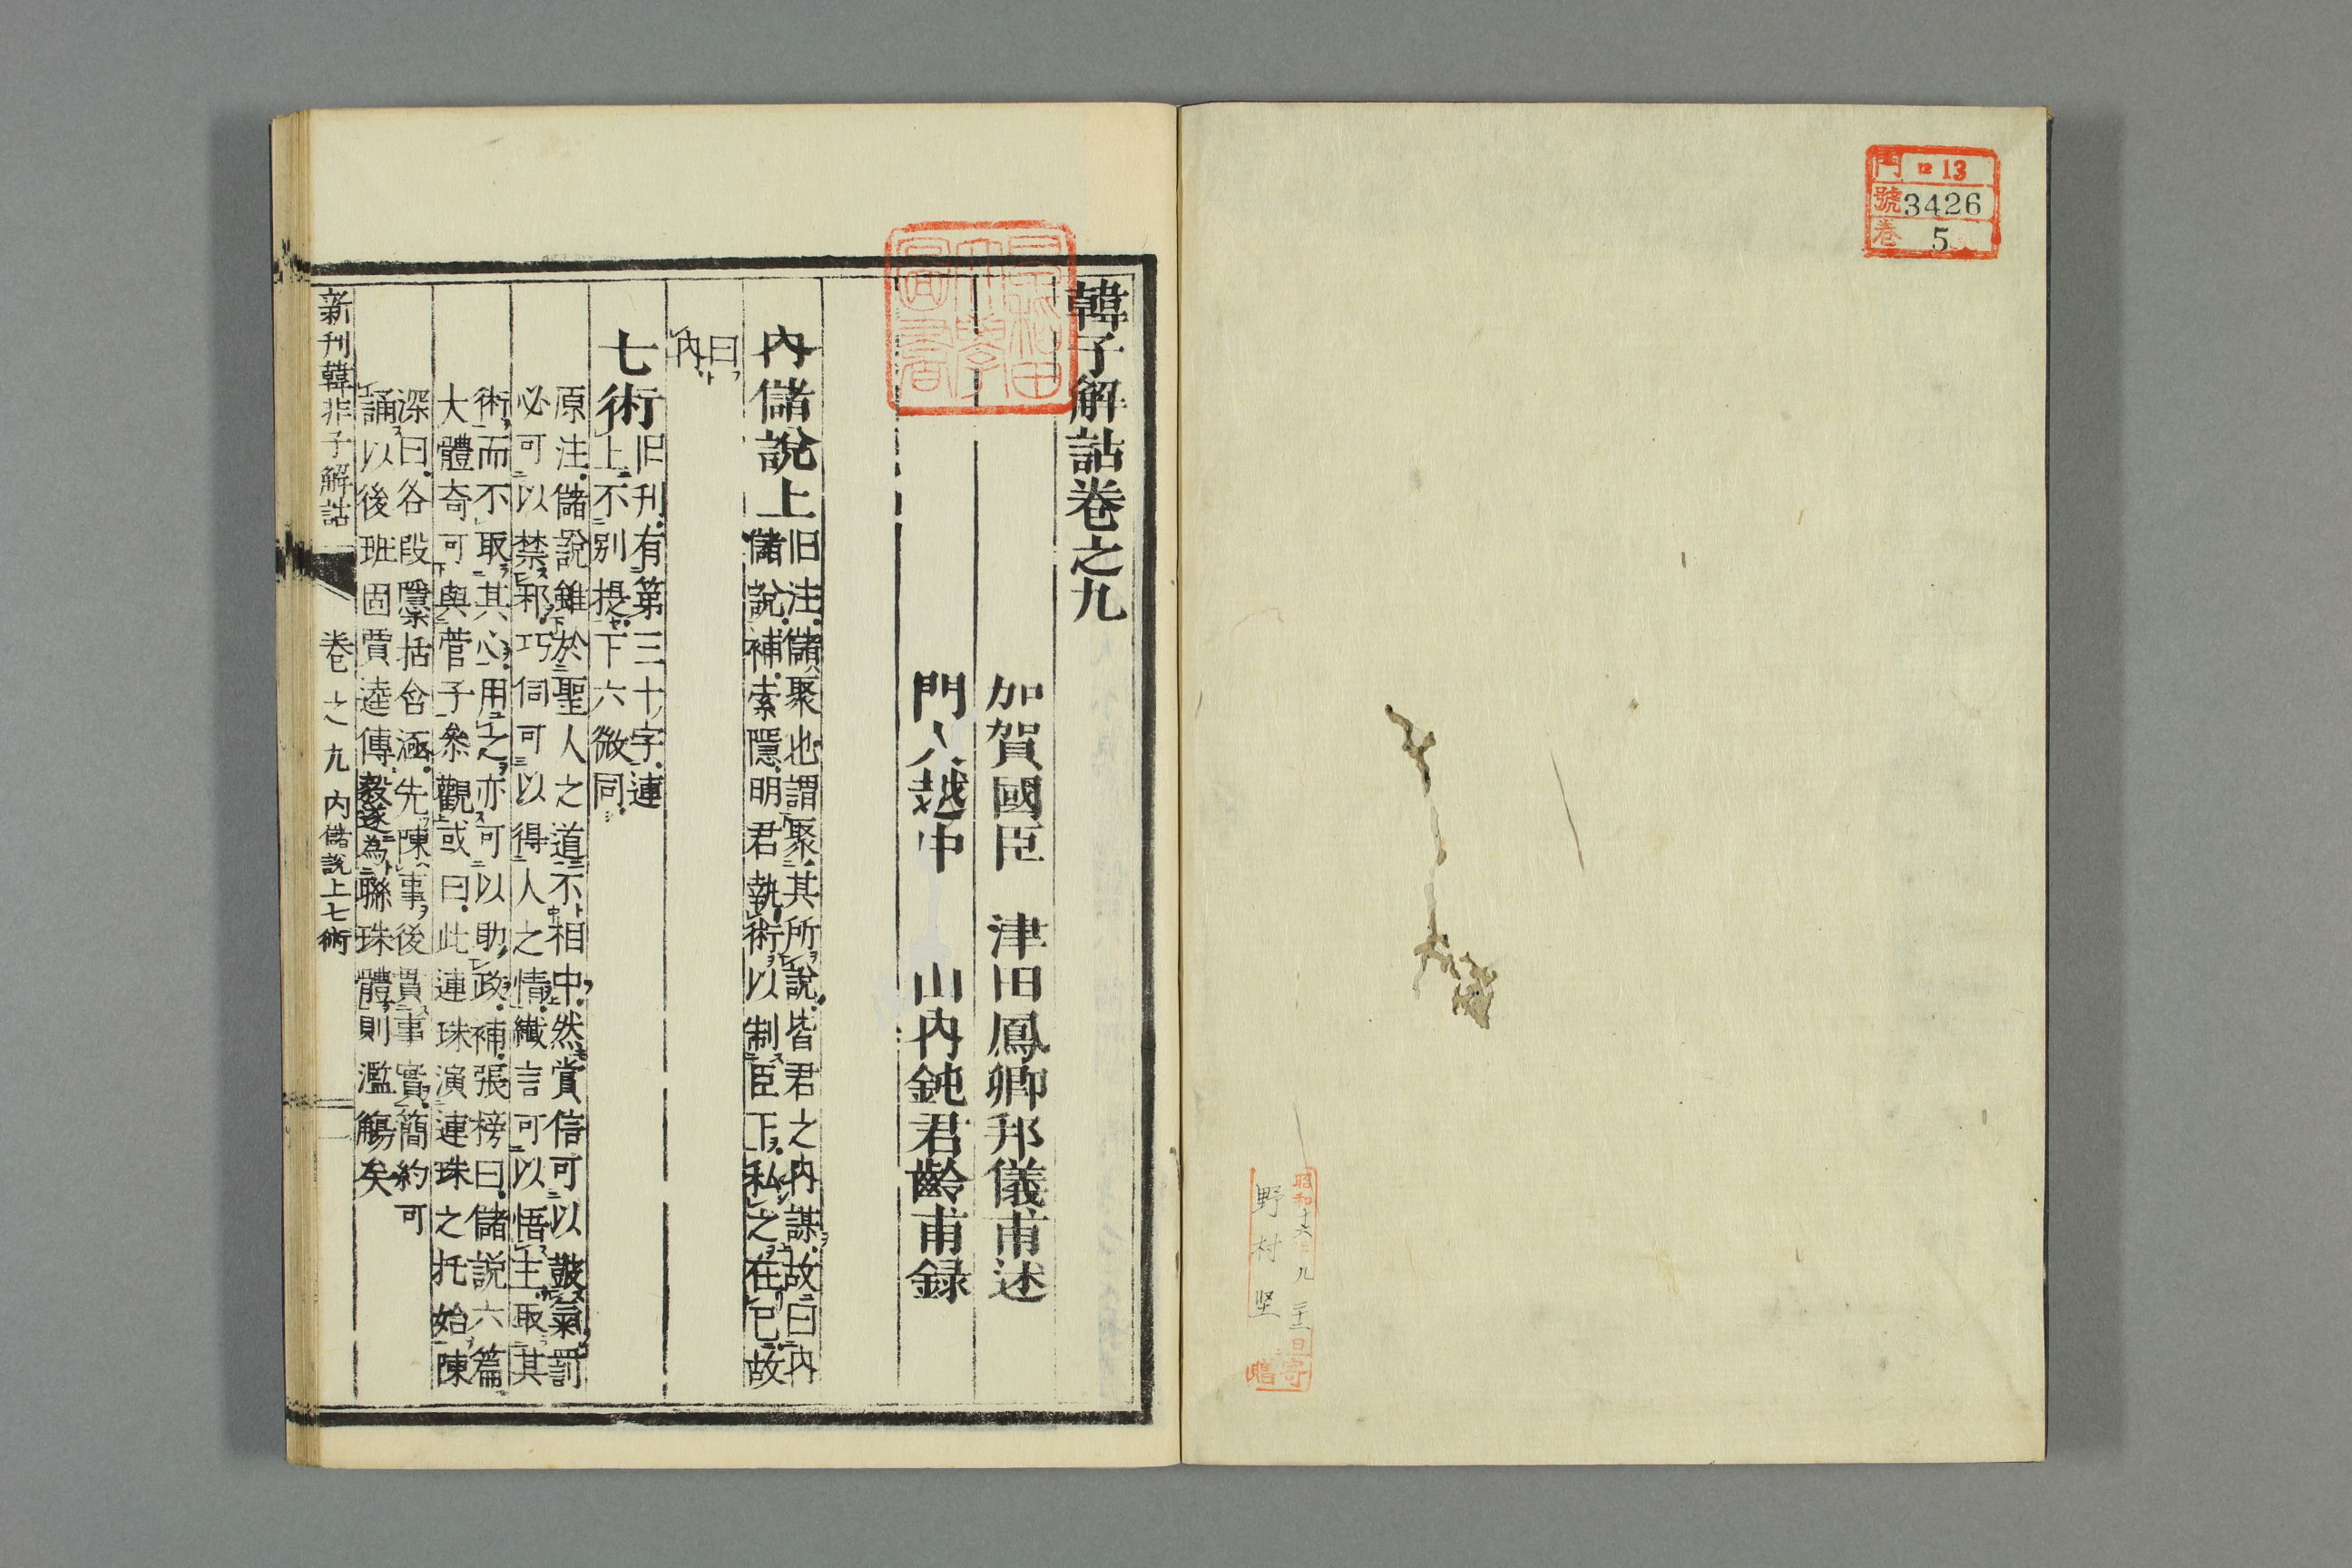 門 ロ13
號 3426
卷 5
昭和十六年九二十二日寄
野村堅 贈
早稲田
大學
圖書
韓子解詁卷之九
加賀國臣 津田鳳卿邦儀甫述
門人越中 山内鈍君齡甫録
內儲說上
旧注儲聚也謂聚其所說皆君之內謀故曰內
儲說補索隱明君執術以制臣下私之在己故
曰
內
七術
旧刊有第三十字連
上不別提下六微同
原注儲說雖於聖人之道不相中然賞信可以鼓氣罰
必可以禁邪巧伺可以得人之情纎言可以悟主取其
術而不取其心用之亦可以助政補張榜曰儲説六篇
大體奇可與菅子叅觀或曰此連珠演連珠之托始陳
深曰各段隱括含涵先陳事後貫事實簡約可
誦以後班固賈逵傳毅遂為聯珠體則濫觴矣
新刊韓非子解詁 卷之九 内儲説上七術 一